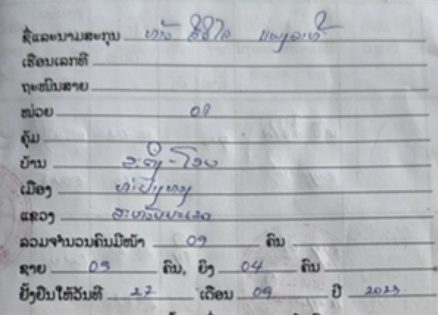 ຊື່ແລະນາມສະກຸນ ທ້າວ
ເຮືອນເລກທີ
ຖະໜົນສາຍ
ໜ່ວຍ 09
ຄຸ້ມ
ບ້ານ
ເມືອງ
ແຂວງ ສະຫວັນນະເຂດ
ລວມຈຳນວນຄົນມີໜ້າ 09 ຄົນ
ຊາຍ 05 ຄົນ, ຍິງ 04 ຄົນ
ຢັ້ງຢືນໃຫ້ວັນທີ 27 ເດືອນ 09 ປີ 2023